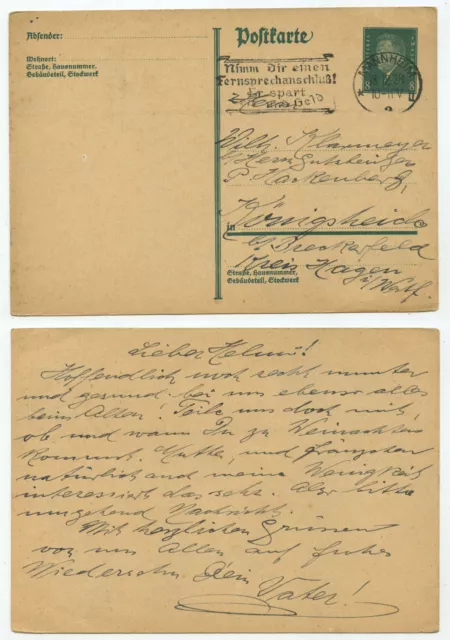 Absender:
Wohnort:
Straße, Hausnummer,
Gebäudeteil, Stockwerk
Postkarte
Nimm Dir einen
Fernsprechanschluß!
Er spart
Geld
MANNHEIM
10-11 V
Herrn
Wilh. Klarmeyer
Herrn Gutsbesitzer
P. Hackenberg,
in Königsheide
b/ Breckerfeld
Kreis Hagen
i/Westf.
Straße, Hausnummer,
Gebäudeteil, Stockwerk
Lieber Helmi!
Hoffendlich noch recht munter
und gesund. bei uns ebenso alles
beim Alten! Teile uns doch mit,
ob und wann Du zu Weinachten
kommst. Mutter, und
natürlich auch meine Wenigkeit
interessiert das sehr. Also bitte
umgehend Nachricht.
Mit herzlichen Grüssen
von uns Allen auf frohes
Wiedersehn. Dein
Vater!